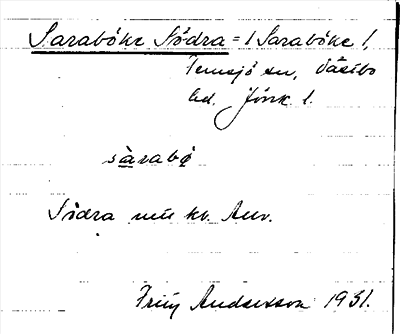 Saraböke Södra = 1 Sarabôke 1,
Femsjö sn, Västbo
hd. Jönk l.
sàrabø
Södra
kv. Anv.
Andersson 1931.